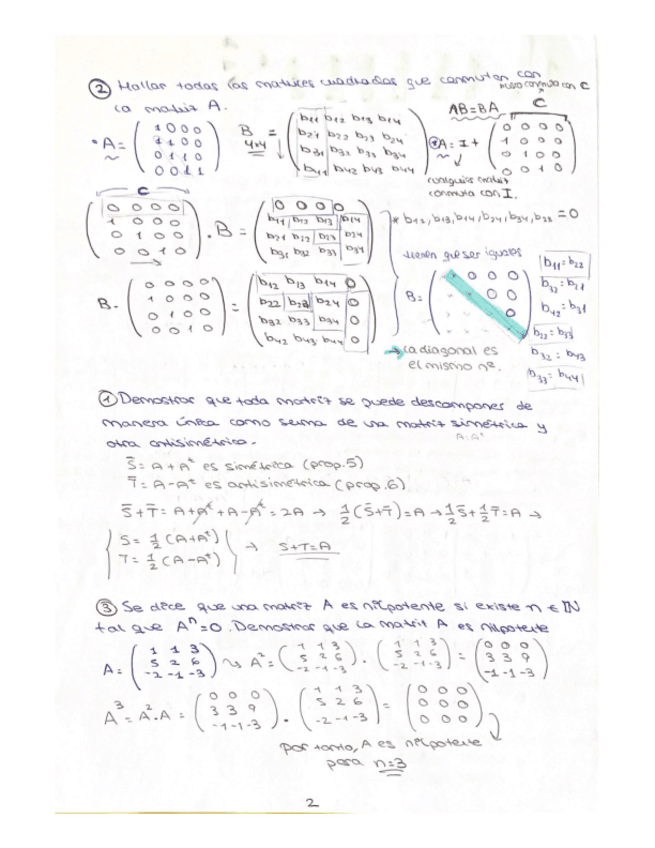 ② Hallar todas las matrices cuadradas que conmutan con
la matriz A.
nueva conmuta con C
AB=BA
C
• A = ( 1 0 0 0
1 1 0 0
0 1 1 0
0 0 1 1 )
B 4x4 = ( b11 b12 b13 b14
b21 b22 b23 b24
b31 b32 b33 b34
b41 b42 b43 b44 )
A = I + ( 0 0 0 0
1 0 0 0
0 1 0 0
0 0 1 0 )
cualquier matriz
conmuta con I.
C
( 0 0 0 0
1 0 0 0
0 1 0 0
0 0 1 0 ) · B = ( 0 0 0 0
b11 b12 b13 b14
b21 b22 b23 b24
b31 b32 b33 b34 )
* b12, b13, b14, b24, b34, b23 = 0
B · ( 0 0 0 0
1 0 0 0
0 1 0 0
0 0 1 0 ) = ( b12 b13 b14 0
b22 b23 b24 0
b32 b33 b34 0
b42 b43 b44 0 )
tienen que ser iguales
B = ( 0 0 0
0 0
0 )
→ la diagonal es
el mismo nº.
b11 = b22
b32 = b21
b42 = b31
b22 = b33
b32 = b43
b33 = b44
① Demostrar que toda matriz se puede descomponer de
manera única como suma de una matriz simétrica y
A=Aᵗ
otra antisimétrica.
S̄ = A + Aᵗ es simétrica (prop.5)
T̄ = A - Aᵗ es antisimétrica (prop.6)
S̄ + T̄ = A + Aᵗ + A - Aᵗ = 2A → 1/2 (S̄+T̄) = A → 1/2 S̄ + 1/2 T̄ = A →
S = 1/2 (A+Aᵗ)
T = 1/2 (A-Aᵗ) → S+T=A
③ Se dice que una matriz A es nilpotente si existe n ∈ ℕ
tal que Aⁿ=0. Demostrar que la matriz A es nilpotente
A = ( 1 1 3
5 2 6
-2 -1 -3 ) ⇝ A² = ( 1 1 3
5 2 6
-2 -1 -3 ) · ( 1 1 3
5 2 6
-2 -1 -3 ) = ( 0 0 0
3 3 9
-1 -1 -3 )
A³ = A² · A = ( 0 0 0
3 3 9
-1 -1 -3 ) · ( 1 1 3
5 2 6
-2 -1 -3 ) = ( 0 0 0
0 0 0
0 0 0 )
por tanto, A es nilpotente
para n=3
2